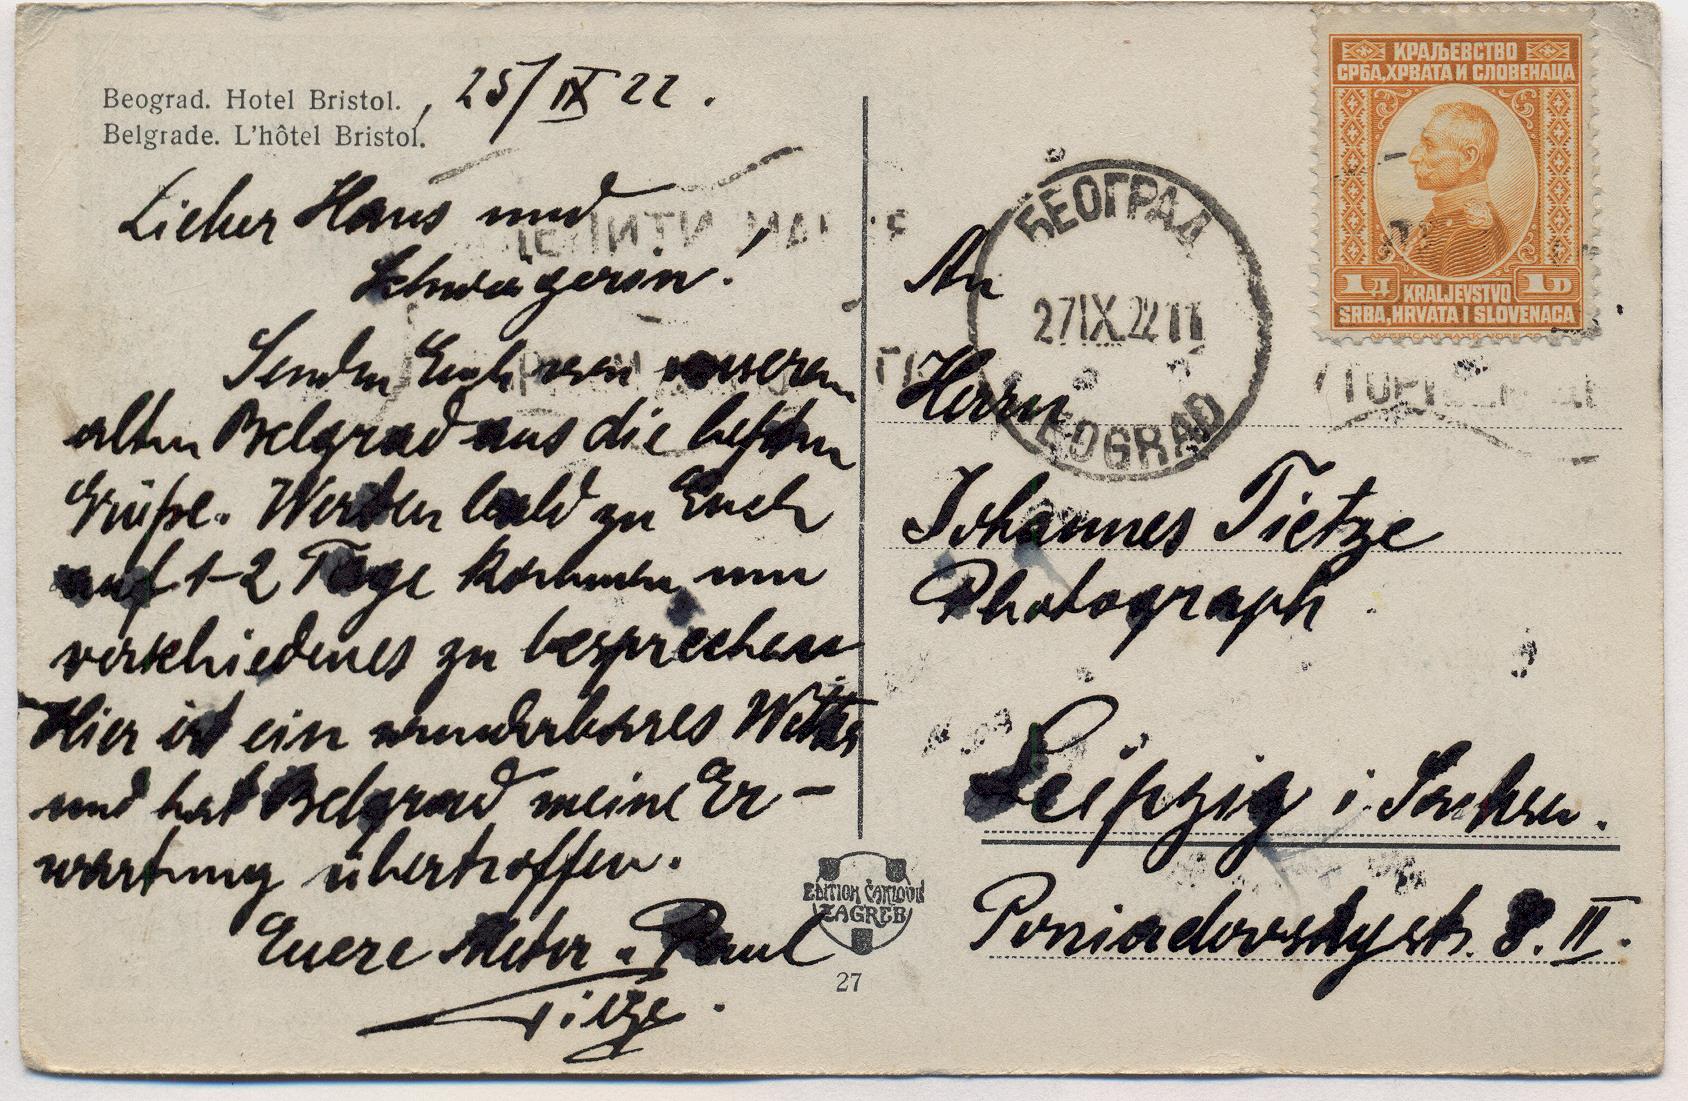 Beograd. Hotel Bristol. , 25/IX 22.
Belgrade. L'hôtel Bristol.
Lieber Hans und
Schwägerin!
Senden Euch von unserem
alten Belgrad aus die besten
Grüße. Werden bald zu Euch
auf 1-2 Tage kommen um
verschiedenes zu besprechen
Hier ist ein wunderbares Wetter
und hat Belgrad meine Er-
wartung übertroffen.
Euere u. Paul
Tietze.
КРАЉЕВСТВО
СРБА, ХРВАТА И СЛОВЕНАЦА
1 Д
1 D
KRALJEVSTVO
SRBA, HRVATA I SLOVENACA
БЕОГРАД
27IX.22 11
BEOGRAD
An
Herrn
Johannes Tietze
Photograph
Leipzig i. Sachsen.
Poniadowskystr. 8. II.
EDITION ČAKLOVIĆ
ZAGREB
27